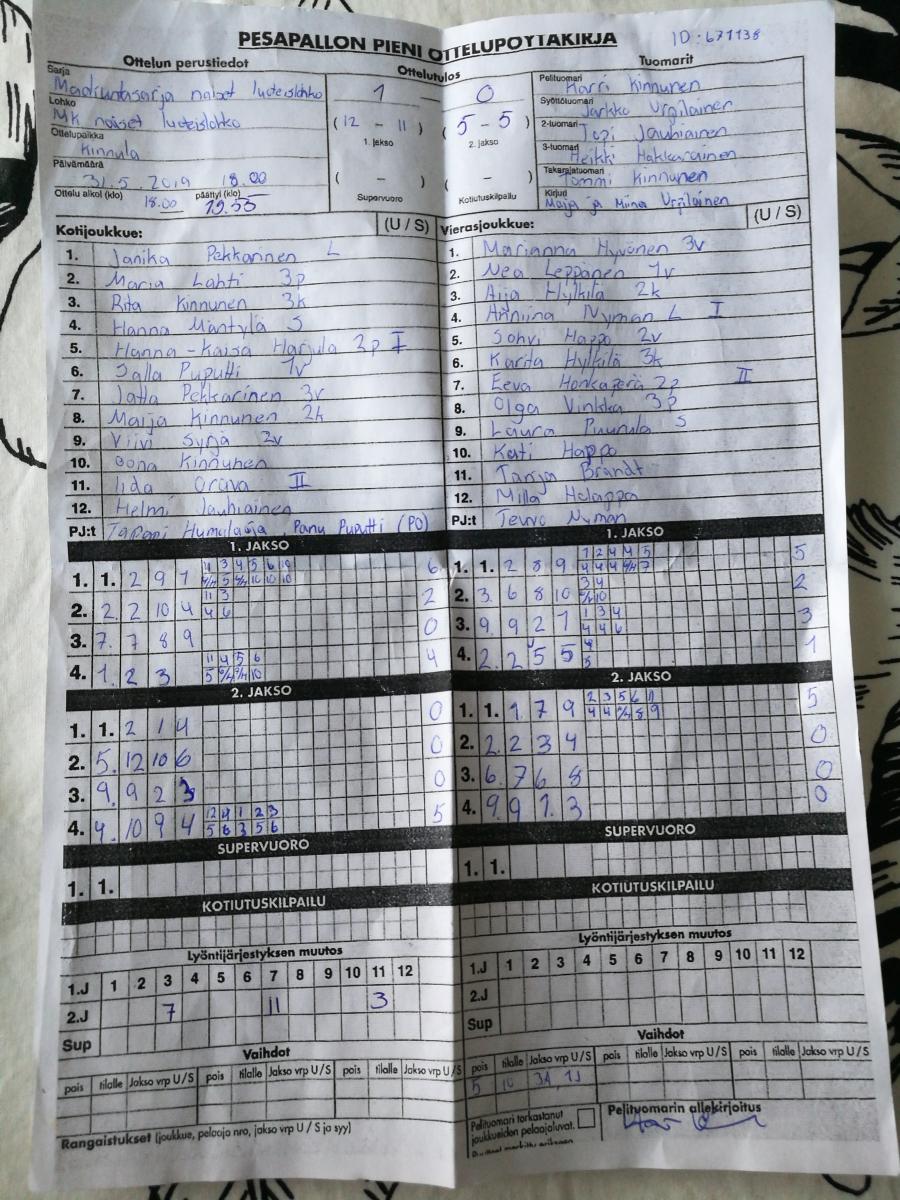 PESÄPALLON PIENI OTTELUPÖYTÄKIRJA ID: 671138
Ottelun perustiedot Ottelutulos Tuomarit
Sarja Maakuntasarja naiset luoteislohko
Lohko MK naiset luoteislohko
Ottelupaikka Kinnula
Päivämäärä 31.5.2019 18.00
Ottelu alkoi (klo) 18.00 päättyi (klo) 19.55
1 – 0
(12 – 11) (5 – 5)
1. jakso 2. jakso
( – ) ( – )
Supervuoro Kotiutuskilpailu
Pelituomari Harri Kinnunen
Syöttötuomari Jarkko Urpilainen
2-tuomari Topi Jauhiainen
3-tuomari Heikki Hakkarainen
Takarajatuomari Tommi Kinnunen
Kirjuri Maija ja Miina Urpilainen
Kotijoukkue: (U / S)
1. Janika Pekkarinen L
2. Maria Lahti 3p
3. Rita Kinnunen 3k
4. Hanna Mäntylä S
5. Hanna-Kaisa Harjula 2p I
6. Salla Puputti 1v
7. Jatta Pekkarinen 3v
8. Maija Kinnunen 2k
9. Viivi Syrjä 2v
10. Oona Kinnunen
11. Iida Orava II
12. Helmi Jauhiainen
PJ:t Tapani Humulaoja, Panu Puputti (PO)
Vierasjoukkue: (U / S)
1. Marianna Hyvönen 3v
2. Nea Leppänen 1v
3. Aija Hylkilä 2k
4. Anniina Nyman L I
5. Sohvi Happo 2v
6. Karita Hylkilä 3k
7. Eeva Honkaperä 2p II
8. Olga Vinkka 3p
9. Laura Puurula S
10. Kati Happo
11. Tanja Brandt
12. Milla Holappa
PJ:t Teuvo Nyman
1. JAKSO
1. 1. 2 9 7 6
2. 2 2 10 4 2
3. 7. 7 8 9 0
4. 1. 2 3 4
2. JAKSO
1. 1. 2 1 4 0
2. 5. 12 10 6 0
3. 9. 9 2 3 0
4. 4. 10 9 4 5
SUPERVUORO
1. 1.
KOTIUTUSKILPAILU
Lyöntijärjestyksen muutos
1.J 1 2 3 4 5 6 7 8 9 10 11 12
2.J 7 11 3
Sup
Vaihdot
pois tilalle Jakso vrp U/S pois tilalle Jakso vrp U/S pois tilalle Jakso vrp U/S
Rangaistukset (joukkue, pelaaja nro, jakso vrp U / S ja syy)
1. JAKSO
1. 1. 2 8 9 5
2. 3. 6 8 10 2
3. 9. 9 2 1 3
4. 2. 2 5 5 1
2. JAKSO
1. 1. 1. 7 9 5
2. 2. 2 3 4 0
3. 6. 7 6 8 0
4. 9. 9 1. 3 0
SUPERVUORO
1. 1.
KOTIUTUSKILPAILU
Lyöntijärjestyksen muutos
1.J 1 2 3 4 5 6 7 8 9 10 11 12
2.J
Sup
Vaihdot
pois tilalle Jakso vrp U/S pois tilalle Jakso vrp U/S pois tilalle Jakso vrp U/S
5 10
Pelituomari tarkastanut
joukkueiden pelaajaluvat.
Pelituomarin allekirjoitus